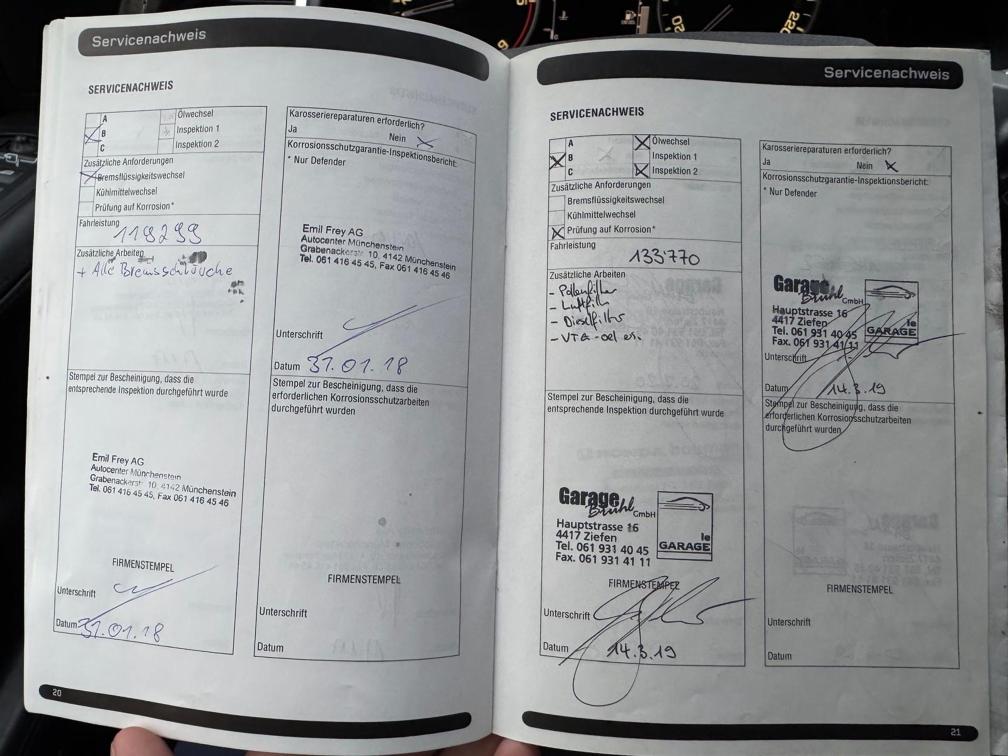 Servicenachweis
SERVICENACHWEIS
A
B
C
Ölwechsel
Inspektion 1
Inspektion 2
Zusätzliche Anforderungen
Bremsflüssigkeitswechsel
Kühlmittelwechsel
Prüfung auf Korrosion*
Fahrleistung
119299
Zusätzliche Arbeiten
+ Alle Bremsschläuche
Stempel zur Bescheinigung, dass die
entsprechende Inspektion durchgeführt wurde
Emil Frey AG
Autocenter Münchenstein
Grabenackerstr. 10, 4142 Münchenstein
Tel. 061 416 45 45, Fax 061 416 45 46
FIRMENSTEMPEL
Unterschrift
Datum 31.01.18
Karosseriereparaturen erforderlich?
Ja Nein
Korrosionsschutzgarantie-Inspektionsbericht:
* Nur Defender
Emil Frey AG
Autocenter Münchenstein
Grabenackerstr. 10, 4142 Münchenstein
Tel. 061 416 45 45, Fax 061 416 45 46
Unterschrift
Datum 31.01.18
Stempel zur Bescheinigung, dass die
erforderlichen Korrosionsschutzarbeiten
durchgeführt wurden
FIRMENSTEMPEL
Unterschrift
Datum
20
Servicenachweis
SERVICENACHWEIS
A
B
C
Ölwechsel
Inspektion 1
Inspektion 2
Zusätzliche Anforderungen
Bremsflüssigkeitswechsel
Kühlmittelwechsel
Prüfung auf Korrosion*
Fahrleistung
133'770
Zusätzliche Arbeiten
- Pollenfilter
- Luftfilter
- Dieselfilter
- VTG-oel
Stempel zur Bescheinigung, dass die
entsprechende Inspektion durchgeführt wurde
Garage
Brühl GmbH
Hauptstrasse 16
4417 Ziefen
Tel. 061 931 40 45
Fax. 061 931 41 11
le
GARAGE
FIRMENSTEMPEL
Unterschrift
Datum 14.3.19
Karosseriereparaturen erforderlich?
Ja Nein
Korrosionsschutzgarantie-Inspektionsbericht:
* Nur Defender
Garage
Brühl GmbH
Hauptstrasse 16
4417 Ziefen
Tel. 061 931 40 45
Fax. 061 931 41 11
le
GARAGE
Unterschrift
Datum 14.3.19
Stempel zur Bescheinigung, dass die
erforderlichen Korrosionsschutzarbeiten
durchgeführt wurden
FIRMENSTEMPEL
Unterschrift
Datum
21